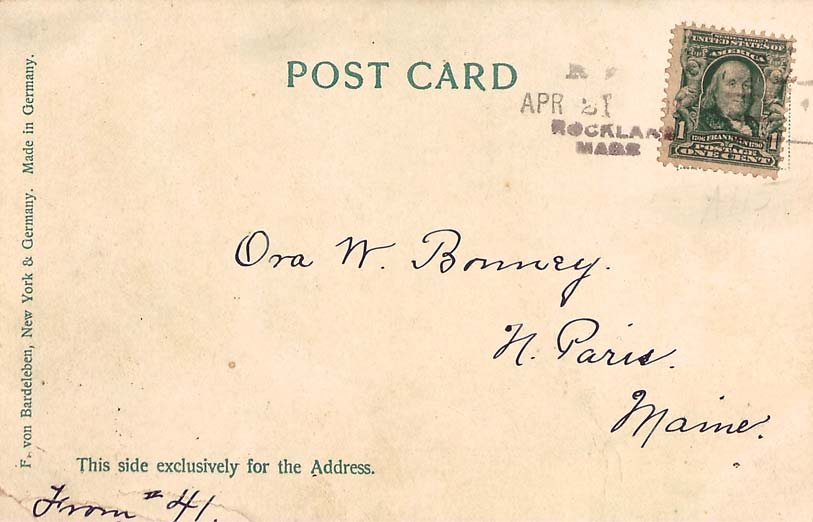 POST CARD
APR 21
ROCKLAND
MASS
UNITED STATES OF
AMERICA
1 FRANKLIN 1
POSTAGE
ONE CENT
Ora W. Bonney.
N. Paris.
Maine.
This side exclusively for the Address.
From # 41.
F. von Bardeleben, New York & Germany. Made in Germany.